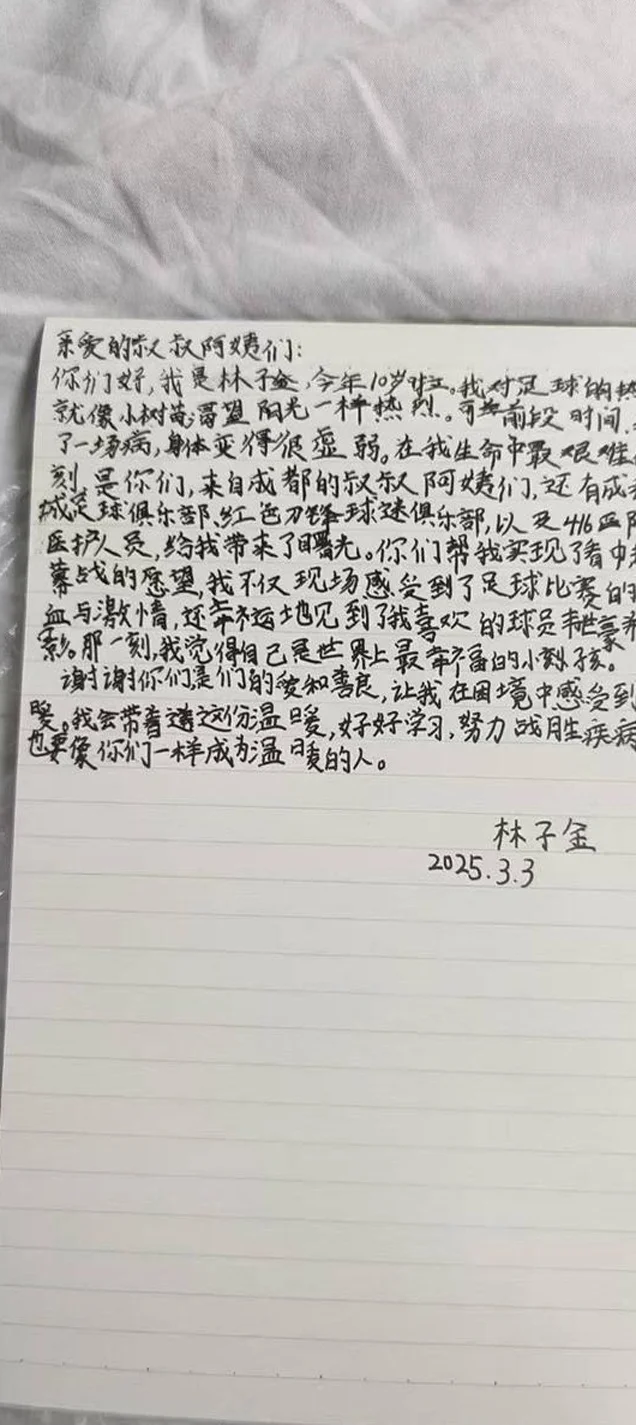 亲爱的叔叔阿姨们:
你们好,我是林子金,今年10岁啦。我对足球的热
就像小树苗渴盟阳光一样热烈。可是前段时间,
了一场病,身体变得很虚弱。在我生命中最艰难
刻,是你们,来自成都的叔叔阿姨们,还有成
城足球俱乐部,红色刀锋球迷俱乐部,以及416医院
医护人员,给我带来了曙光。你们帮我实现了看中超
幕战的愿望,我不仅现场感受到了足球比赛的
血与激情,还幸运地见到了我喜欢的球员韦世豪
影。那一刻,我觉得自己是世界上最幸福的小孩。
谢谢你们是们的爱和善良,让我在困境中感受到
暖。我会带着这份温暖,好好学习,努力战胜疾病
也要像你们一样成为温暖的人。
林子金
2025.3.3